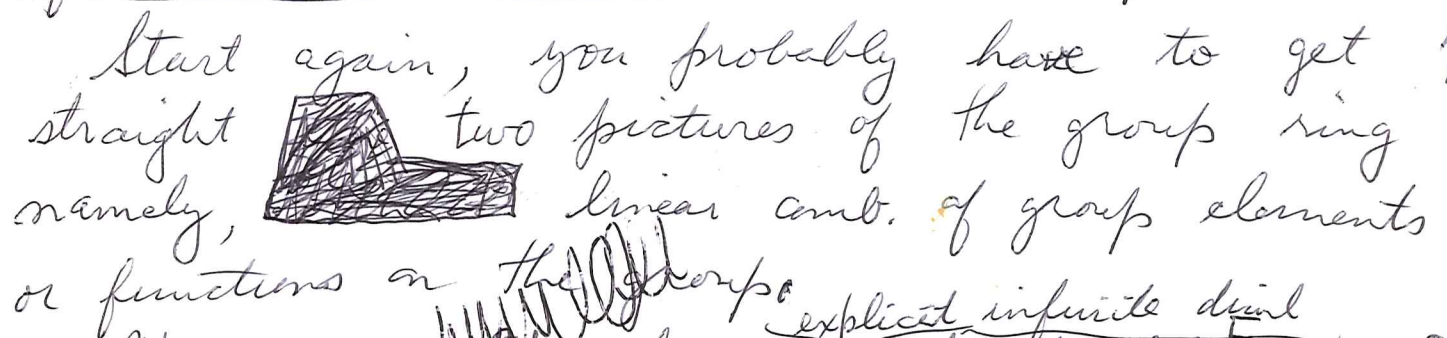 Start again, you probably have to get
straight two pictures of the group ring
namely, linear comb. of group elements
or functions on the group.
explicit infinite diml